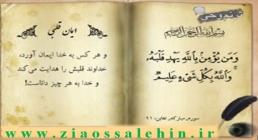 ایمان قلبی
و هر کس به خدا ایمان آورد،
خداوند قلبش را هدایت می‌کند
و خدا به هر چیز داناست!
بسم الله الرحمن الرحیم
وَمَن يُؤْمِن بِاللَّهِ يَهْدِ قَلْبَهُ
وَاللَّهُ بِكُلِّ شَيْءٍ عَلِيمٌ
سوره مبارکه تغابن، ۱۱
www.ziaossalehin.ir